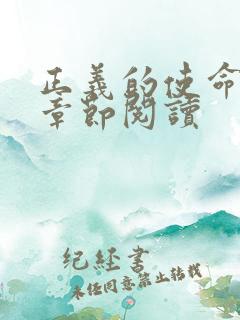 正義的使命
章節閱讀
纪经書
未经同意禁止转载